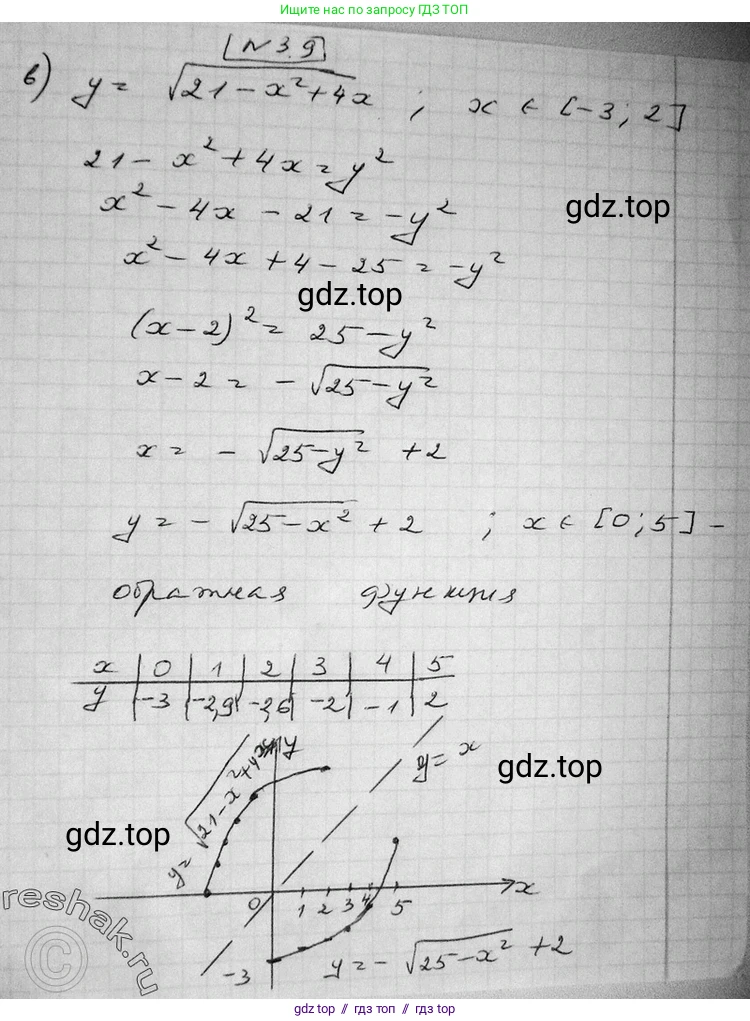 Ищите ответы по запросу ГДЗ ТОП
N 3.9
в) y = √(21 - x² + 4x) ; x ∈ [-3; 2]
21 - x² + 4x = y²
x² - 4x - 21 = -y²
gdz.top
x² - 4x + 4 - 25 = -y²
gdz.top
(x - 2)² = 25 - y²
x - 2 = - √(25 - y²)
x = - √(25 - y²) + 2
y = - √(25 - x²) + 2 ; x ∈ [0; 5] -
обратная функция
x | 0 | 1 | 2 | 3 | 4 | 5
y | -3 | -2,9 | -2,6 | -2 | -1 | 2
y
y = x
y = √(21 - x² + 4x)
gdz.top
gdz.top
0 1 2 3 4 5 x
-3
y = - √(25 - x²) + 2
reshak.ru
©
gdz top // гдз топ // gdz.top